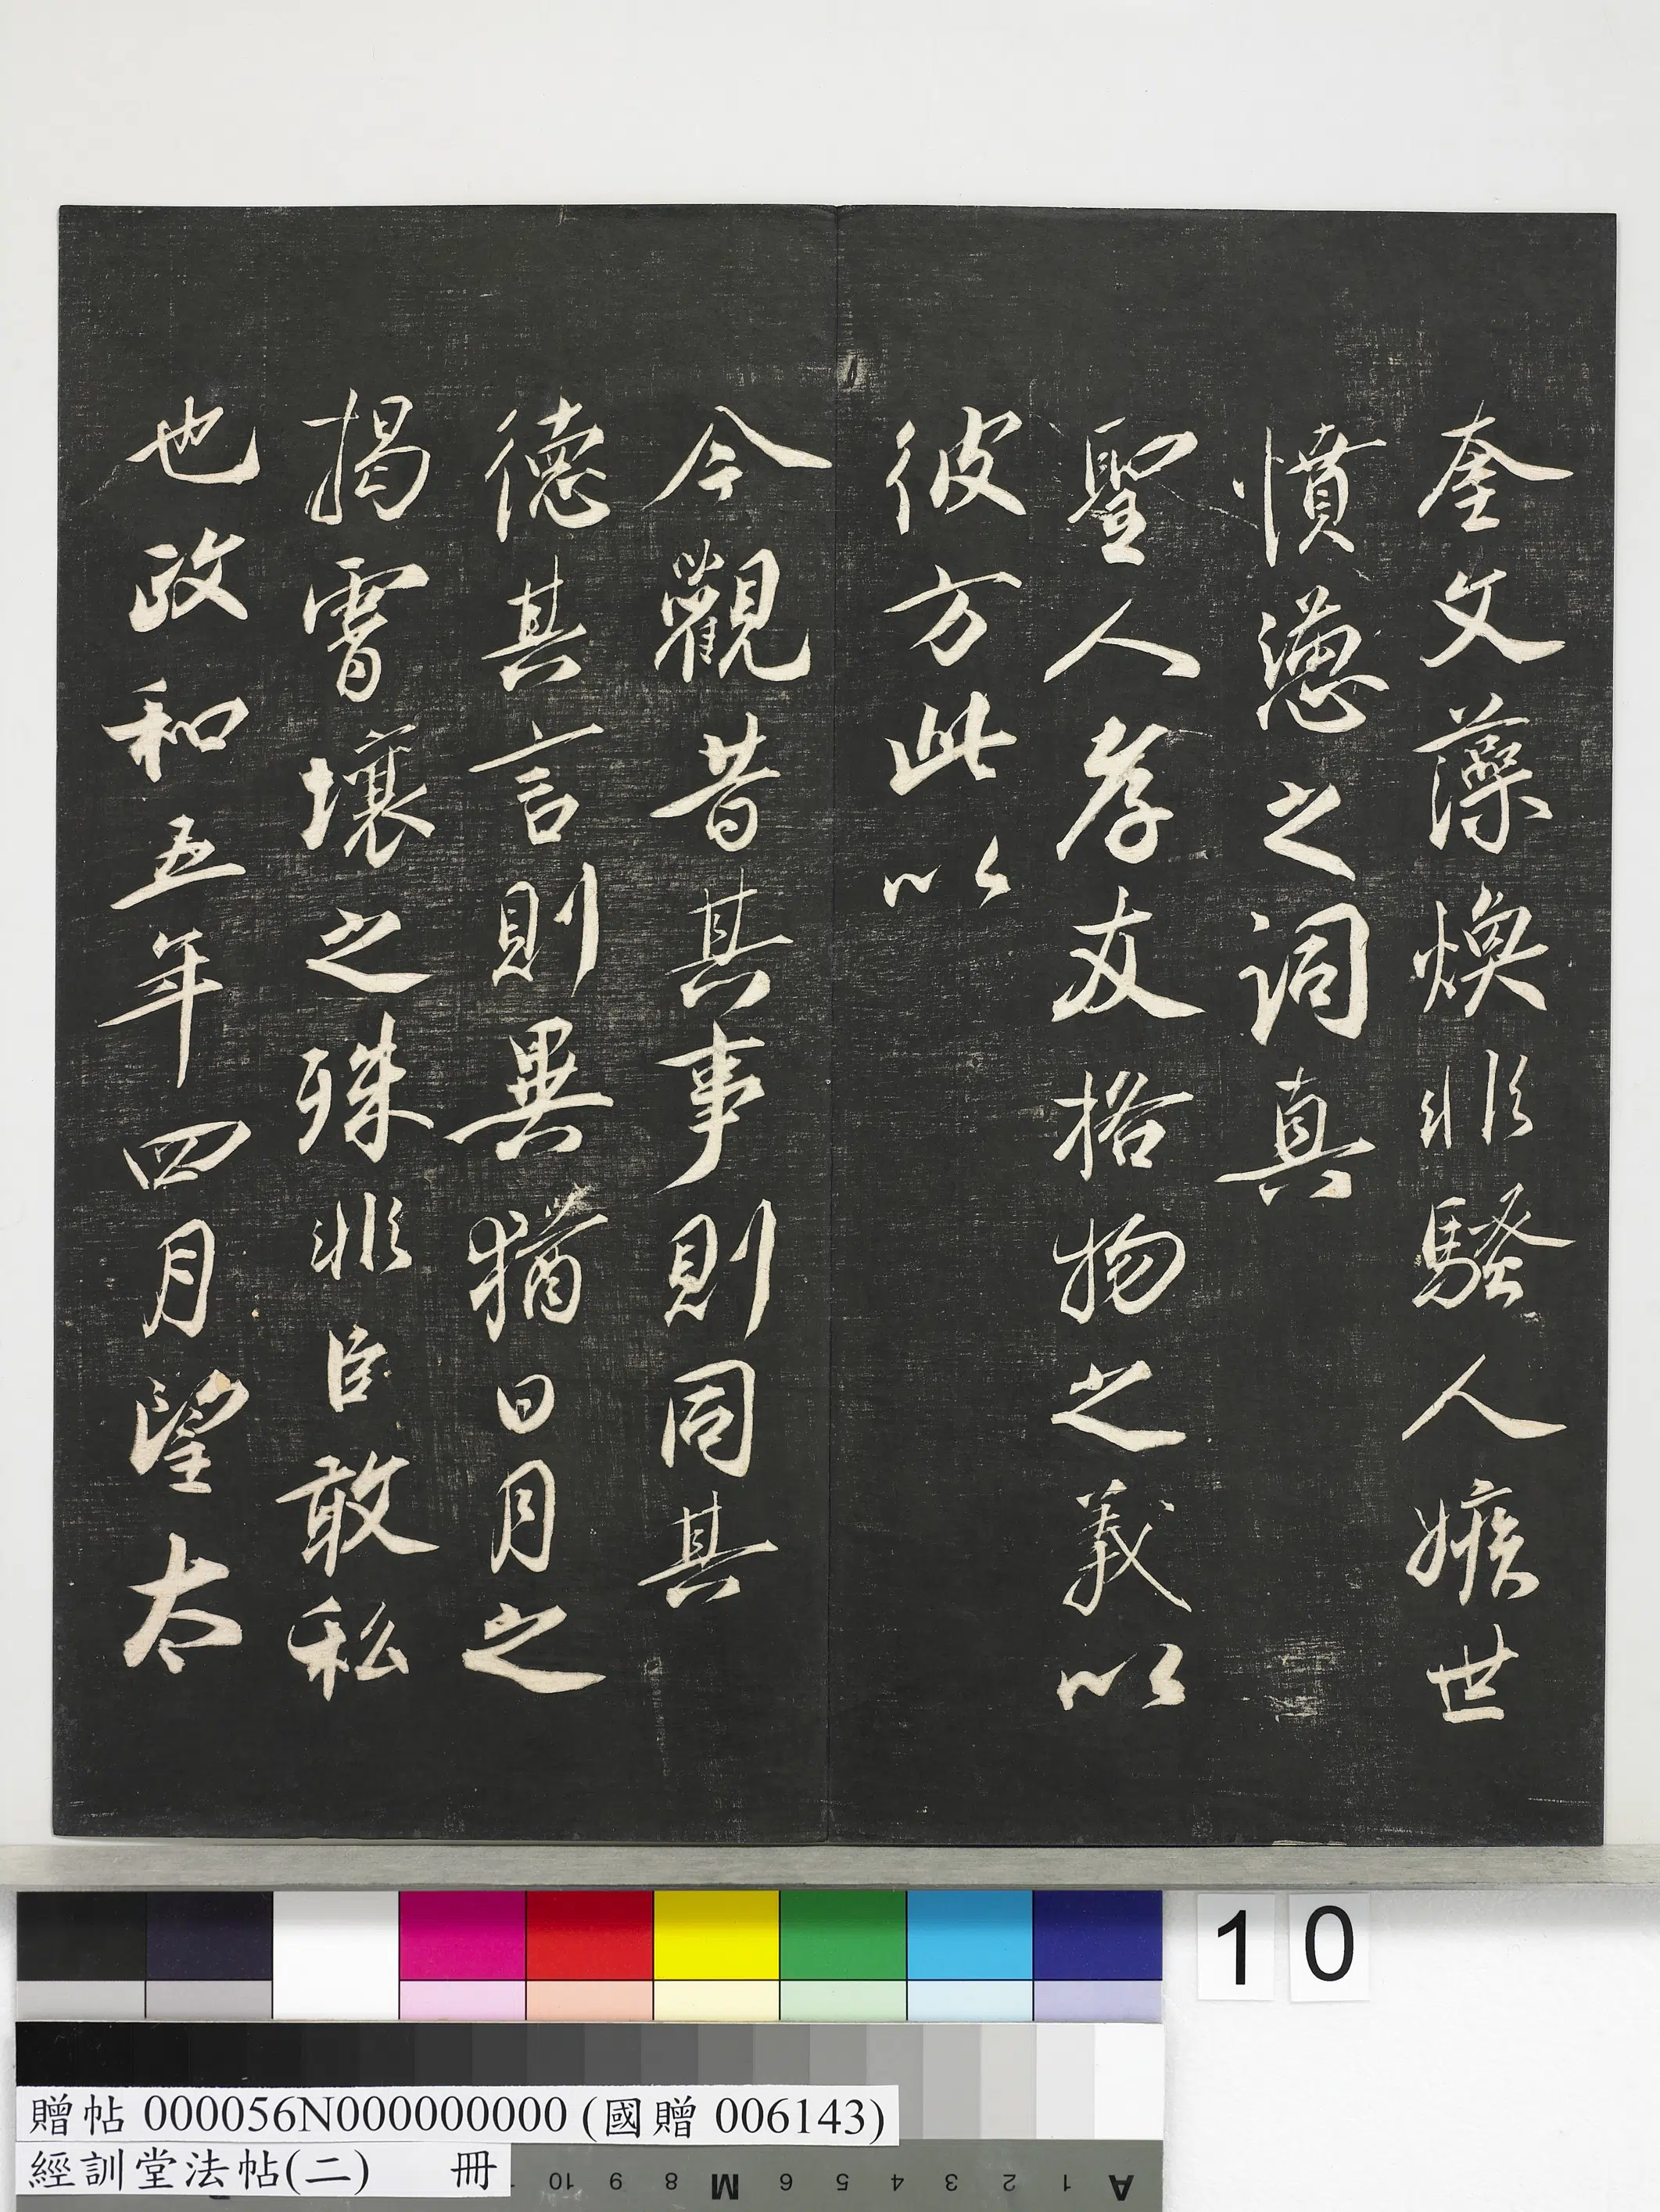 奎文藻煥非騷人嫉世
憤懣之詞真
聖人孝友格物之義以
彼方此以
今觀昔其事則同其
德其言則異猶日月之
揭霄壤之殊非臣敢私
也政和五年四月望太
10
贈帖 000056N000000000 (國贈 006143)
經訓堂法帖(二) 冊
10 9 8 M 6 5 4 3 2 1 A